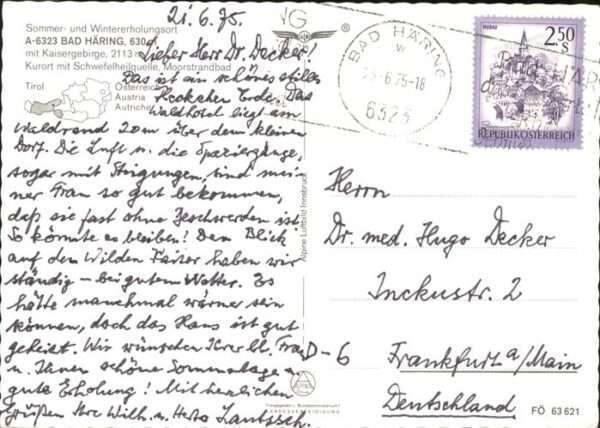 Sommer- und Wintererholungsort
A-6323 BAD HÄRING, 630 m
mit Kaisergebirge, 2113 m
Kurort mit Schwefelheilquelle, Moorstrandbad
Tirol
Österreich
Austria
Autriche
21.6.75.
Lieber Herr Dr. Decker!
Das ist ein schönes stilles
Fleckchen Erde. Das
Waldhotel liegt am
Waldrand 20m über dem kleinen
Dorf. Die Luft u. die Spaziergänge,
sogar mit Steigungen, sind mei-
ner Frau so gut bekommen,
daß sie fast ohne Beschwerden ist.
So könnte es bleiben! Den Blick
auf den Wilden Kaiser haben wir
ständig – bei gutem Wetter. Es
hätte manchmal wärmer sein
können, doch das Haus ist gut
geheizt. Wir wünschen Ihrer lb. Frau
u. Ihnen schöne Sommertage u.
gute Erholung! Mit herzlichen
Grüßen Ihre Wilh. u. Herta
Alpine Luftbild Innsbruck
BAD HÄRING
-6.75-18
6323
2.50
S
REPUBLIK ÖSTERREICH
Herrn
Dr. med. Hugo Decker
Inckustr. 2
D-6 Frankfurt a/Main
Deutschland
FÖ 63 621